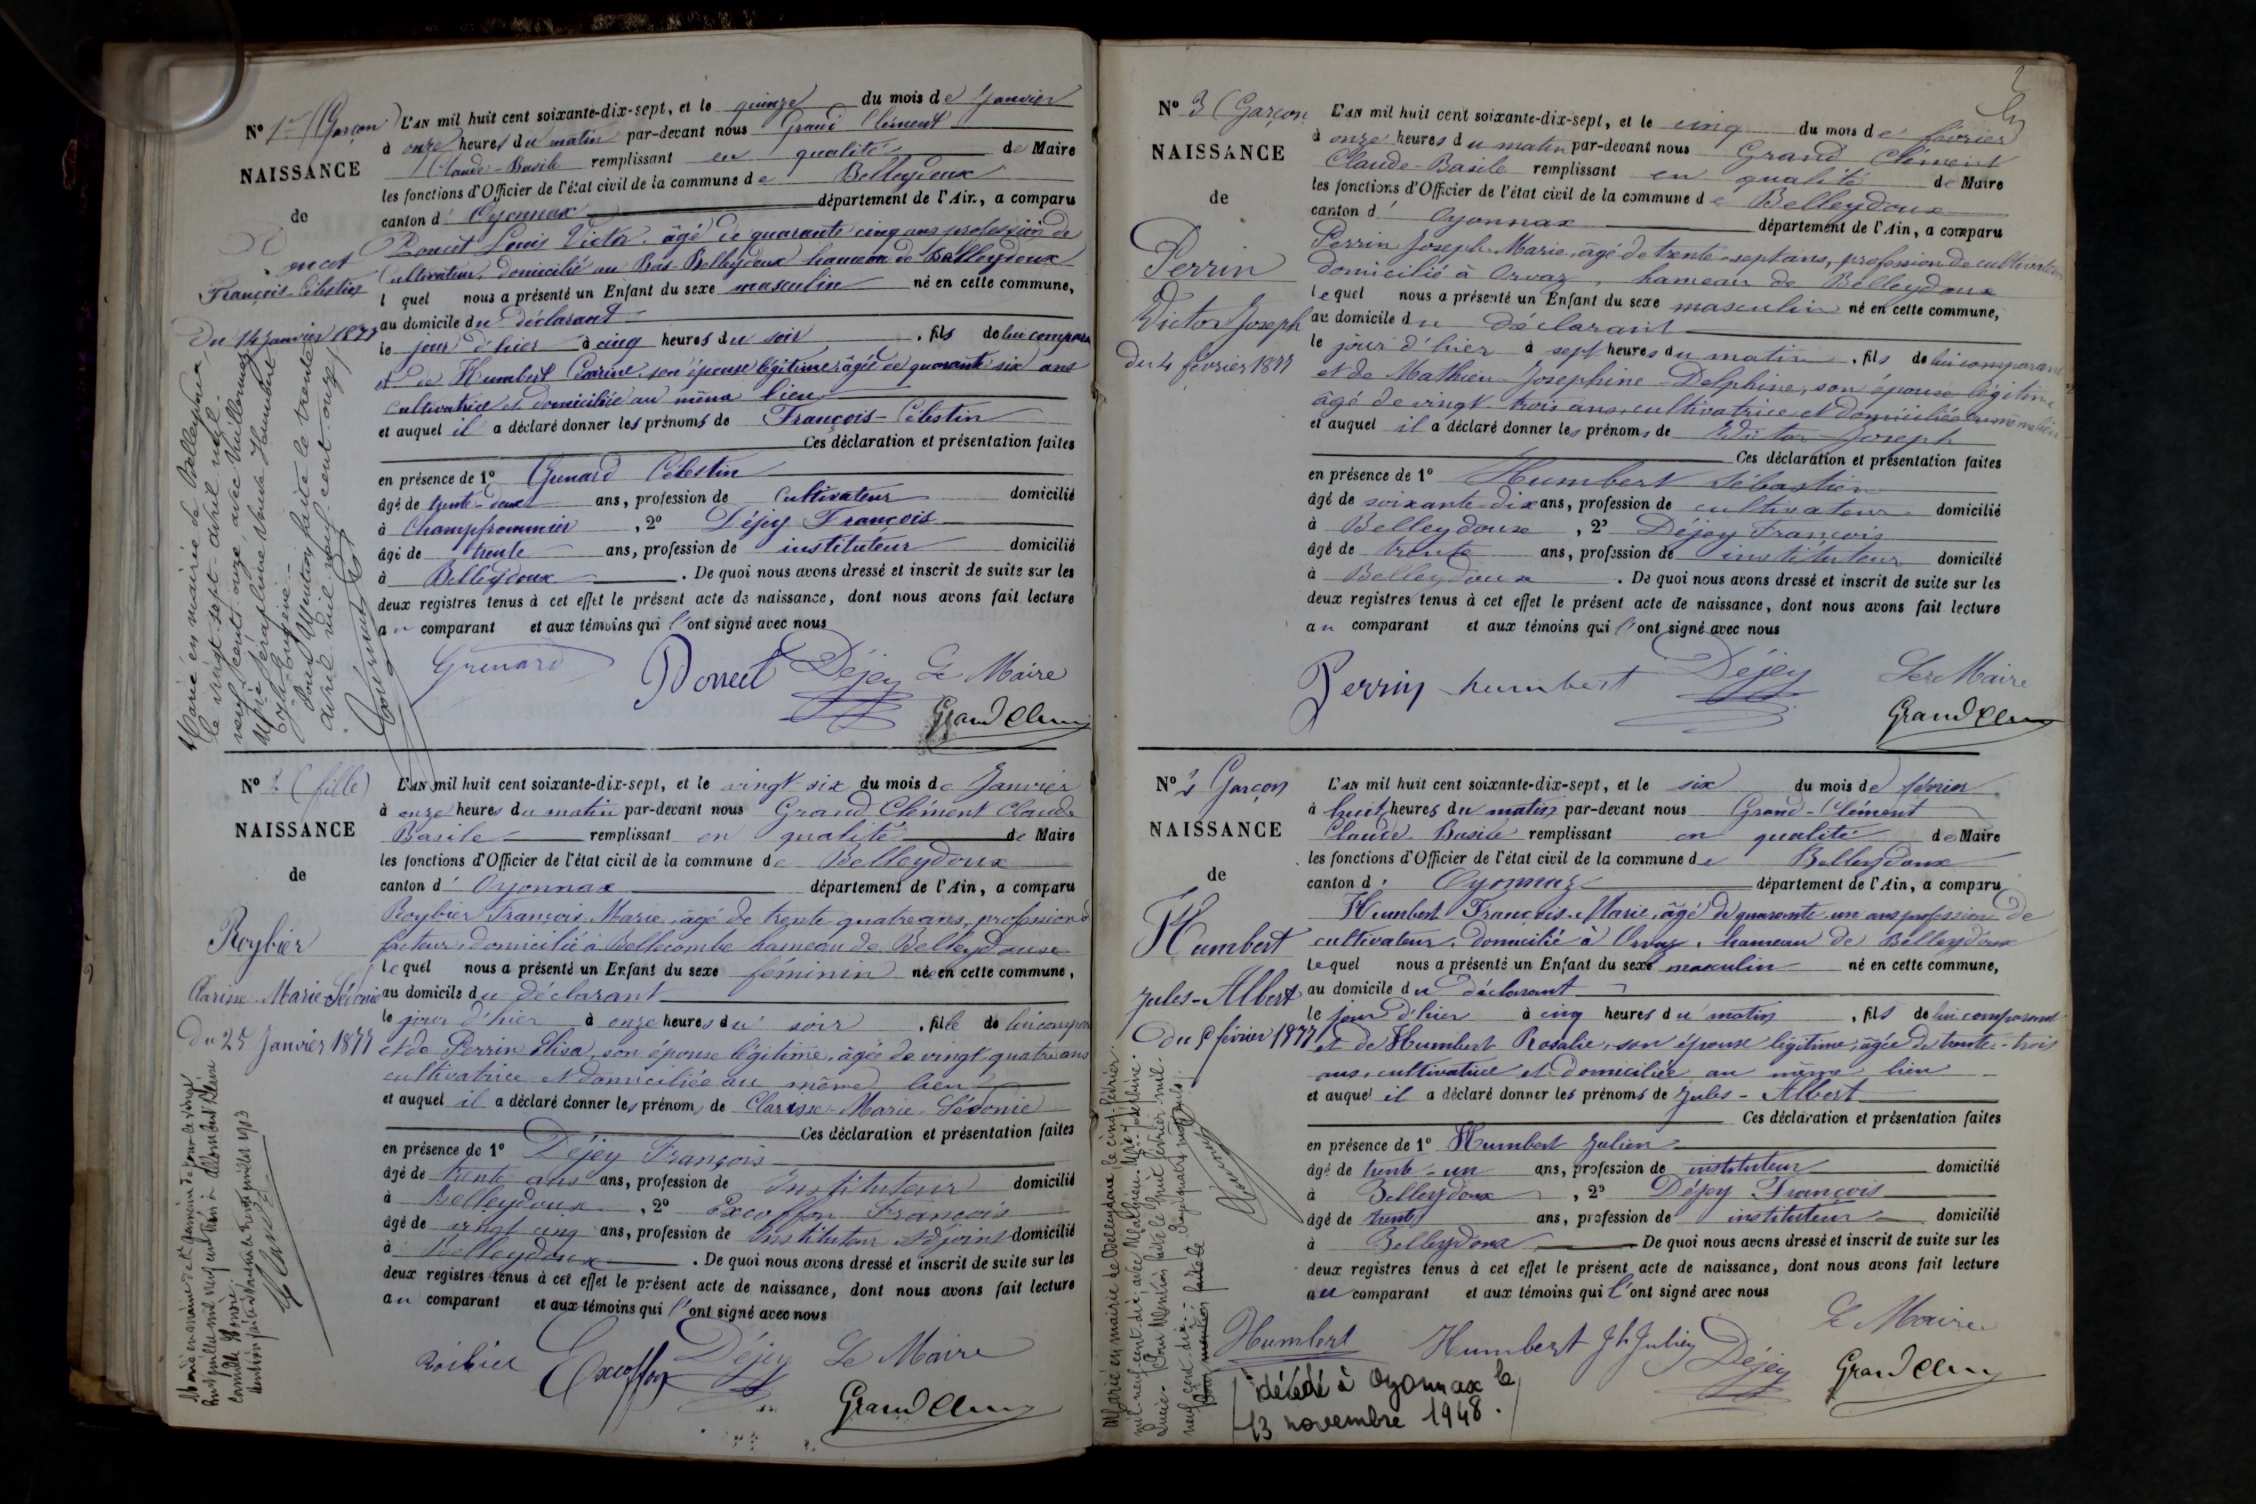 N° 1er (Garçon)
NAISSANCE
de
Poncet
François-Célestin
Du 14 Janvier 1877
L'AN mil huit cent soixante-dix-sept, et le quinze du mois de Janvier
à onze heures du matin par-devant nous Grand Clément
Claude-Basile remplissant en qualité de Maire
les fonctions d'Officier de l'état civil de la commune de Belleydoux
canton d' Oyonnax département de l'Ain, a comparu
Poncet Louis Victor, âgé de quarante cinq ans profession de
Cultivateur, domicilié au Bas Belleydoux hameau de Belleydoux
lequel nous a présenté un Enfant du sexe masculin né en cette commune,
au domicile du déclarant
le jour d'hier à cinq heures du soir, fils de lui comparant
et de Humbert Carine son épouse légitime âgée de quarante six ans
cultivatrice et domiciliée au même lieu
et auquel il a déclaré donner les prénoms de François-Célestin
Ces déclaration et présentation faites
en présence de 1° Grenard Célestin
âgé de trente-deux ans, profession de Cultivateur domicilié
à Champfrommier, 2° Déjey François
âgé de trente ans, profession de instituteur domicilié
à Belleydoux. De quoi nous avons dressé et inscrit de suite sur les
deux registres tenus à cet effet le présent acte de naissance, dont nous avons fait lecture
au comparant et aux témoins qui l'ont signé avec nous
Grenard Poncet Déjey Le Maire
Grand Clém
Marié en mairie de Belleydoux
le vingt-sept avril mil
neuf cent onze, avec Vuillermoz
Marie Séraphine Veuve Humbert
Joseph-Eugène
Pour Mention faite le trente
avril mil neuf cent onze
N° 2 (fille)
NAISSANCE
de
Roybier
Clarisse-Marie-Sédonie
Du 25 Janvier 1877
L'AN mil huit cent soixante-dix-sept, et le vingt six du mois de Janvier
à onze heures du matin par-devant nous Grand Clément Claude
Basile remplissant en qualité de Maire
les fonctions d'Officier de l'état civil de la commune de Belleydoux
canton d' Oyonnax département de l'Ain, a comparu
Roybier François Marie, âgé de trente quatre ans, profession de
facteur, domicilié à Bellecombe hameau de Belleydoux
lequel nous a présenté un Enfant du sexe féminin né en cette commune,
au domicile du déclarant
le jour d'hier à onze heures du soir, fille de lui comparant
et de Perrin Elisa, son épouse légitime, âgée de vingt quatre ans
cultivatrice et domiciliée au même lieu
et auquel il a déclaré donner les prénoms de Clarisse-Marie-Sédonie
Ces déclaration et présentation faites
en présence de 1° Déjey François
âgé de trente ans ans, profession de Instituteur domicilié
à Belleydoux, 2° Excoffon François
âgé de vingt cinq ans, profession de Instituteur Adjoint domicilié
à Belleydoux. De quoi nous avons dressé et inscrit de suite sur les
deux registres tenus à cet effet le présent acte de naissance, dont nous avons fait lecture
au comparant et aux témoins qui l'ont signé avec nous
Roibier Excoffon Déjey Le Maire
Grand Clém
N° 3 (Garçon
NAISSANCE
de
Perrin
Victor Joseph
du 4 février 1877
L'AN mil huit cent soixante-dix-sept, et le cinq du mois de février
à onze heures du matin par-devant nous Grand Clément
Claude-Basile remplissant en qualité de Maire
les fonctions d'Officier de l'état civil de la commune de Belleydoux
canton d' Oyonnax département de l'Ain, a comparu
Perrin Joseph-Marie, âgé de trente-sept ans, profession de cultivateur
domicilié à Orvaz, hameau de Belleydoux
lequel nous a présenté un Enfant du sexe masculin né en cette commune,
au domicile du déclarant
le jour d'hier à sept heures du matin, fils de lui comparant
et de Mathieu Josephine-Delphine, son épouse légitime
âgé de vingt-trois ans, cultivatrice et domiciliée au même lieu
et auquel il a déclaré donner les prénoms de Victor Joseph
Ces déclaration et présentation faites
en présence de 1° Humbert Sébastien
âgé de soixante-dix ans, profession de cultivateur domicilié
à Belleydoux, 2° Déjey François
âgé de trente ans, profession de instituteur domicilié
à Belleydoux. De quoi nous avons dressé et inscrit de suite sur les
deux registres tenus à cet effet le présent acte de naissance, dont nous avons fait lecture
au comparant et aux témoins qui l'ont signé avec nous
Perrin humbert Déjey Le Maire
Grand Clém
N° 4 Garçon
NAISSANCE
de
Humbert
Jules-Albert
Du 5 février 1877
L'AN mil huit cent soixante-dix-sept, et le six du mois de février
à huit heures du matin par-devant nous Grand-Clément
Claude Basile remplissant en qualité de Maire
les fonctions d'Officier de l'état civil de la commune de Belleydoux
canton d' Oyonnax département de l'Ain, a comparu
Humbert François-Marie, âgé de quarante un ans profession de
cultivateur, domicilié à Orvaz, hameau de Belleydoux
lequel nous a présenté un Enfant du sexe masculin né en cette commune,
au domicile du déclarant
le jour d'hier à cinq heures du matin, fils de lui comparant
et de Humbert Rosalie, son épouse légitime, âgée de trente-trois
ans, cultivatrice et domiciliée au même lieu
et auquel il a déclaré donner les prénoms de Jules-Albert
Ces déclaration et présentation faites
en présence de 1° Humbert Julien
âgé de trente-un ans, profession de instituteur domicilié
à Belleydoux, 2° Déjey François
âgé de trente ans, profession de instituteur domicilié
à Belleydoux De quoi nous avons dressé et inscrit de suite sur les
deux registres tenus à cet effet le présent acte de naissance, dont nous avons fait lecture
au comparant et aux témoins qui l'ont signé avec nous
Humbert Humbert Jh Julien Déjey Le Maire
Grand Clém
Marié en mairie de Belleydoux, le cinq février
mil neuf cent dix, avec Mathieu
Pour Mention faite le huit février mil
neuf cent dix
décédé à Oyonnax le
13 novembre 1948.